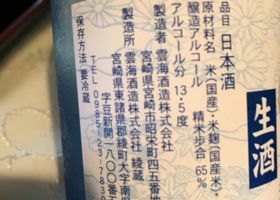 生酒
品目 日本酒
原材料名 米(国産)・米麹(国産米)・
醸造アルコール
精米歩合 65%
アルコール分 13・5度
製造者 雲海酒造株式会社
宮崎県宮崎市昭栄町四五番地
製造所 雲海酒造株式会社 綾蔵
宮崎県東諸県郡綾町大字南俣
字豆新開一八〇〇番
TEL 0985
保存方法 要冷蔵